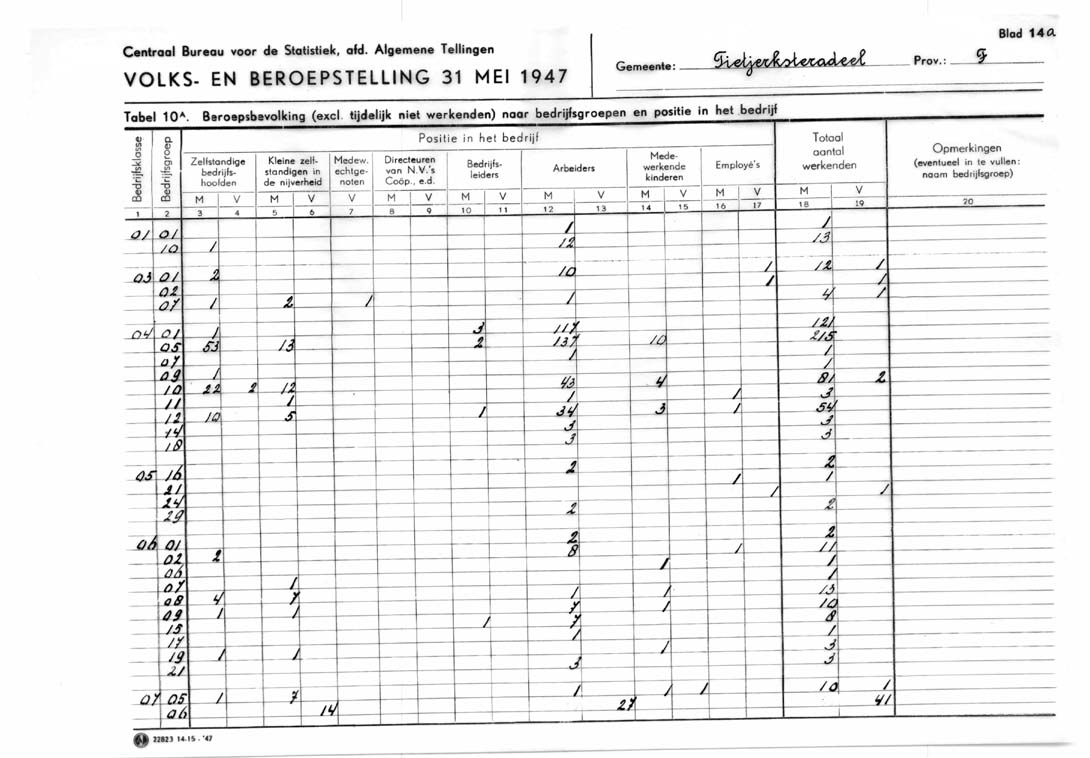 Blad 14a
Centraal Bureau voor de Statistiek, afd. Algemene Tellingen
VOLKS- EN BEROEPSTELLING 31 MEI 1947
Gemeente: Tietjerksteradeel Prov.: F
Tabel 10A. Beroepsbevolking (excl. tijdelijk niet werkenden) naar bedrijfsgroepen en positie in het bedrijf
Bedrijfsklasse Bedrijfsgroep Positie in het bedrijf Totaal aantal werkenden Opmerkingen (eventueel in te vullen: naam bedrijfsgroep)
Zelfstandige bedrijfshoofden Kleine zelfstandigen in de nijverheid Medew. echtgenoten Directeuren van N.V.'s Coöp., e.d. Bedrijfsleiders Arbeiders Medewerkende kinderen Employé's
M V M V V M V M V M V M V M V M V
1 2 3 4 5 6 7 8 9 10 11 12 13 14 15 16 17 18 19 20
01 01 1 1
10 1 12 13
03 01 2 10 1 12 1
02 1 1
07 1 2 1 1 4 1
04 01 1 3 117 121
05 53 13 2 137 10 215
07 1 1
09 1 1
10 22 2 12 43 4 81 2
11 1 1 1 3
12 10 5 1 34 3 1 54
14 3 3
18 3 3
05 16 2 2
21 1 1
24 1 1
29 2 2
06 01 2 2
02 2 8 1 11
06 1 1
07 1 1
08 4 7 1 1 13
09 1 1 7 1 10
15 1 7 8
17 1 1
19 1 1 1 3
21 3 3
07 05 1 7 1 1 1 10 1
06 14 27 41
22823 14-15 - '47